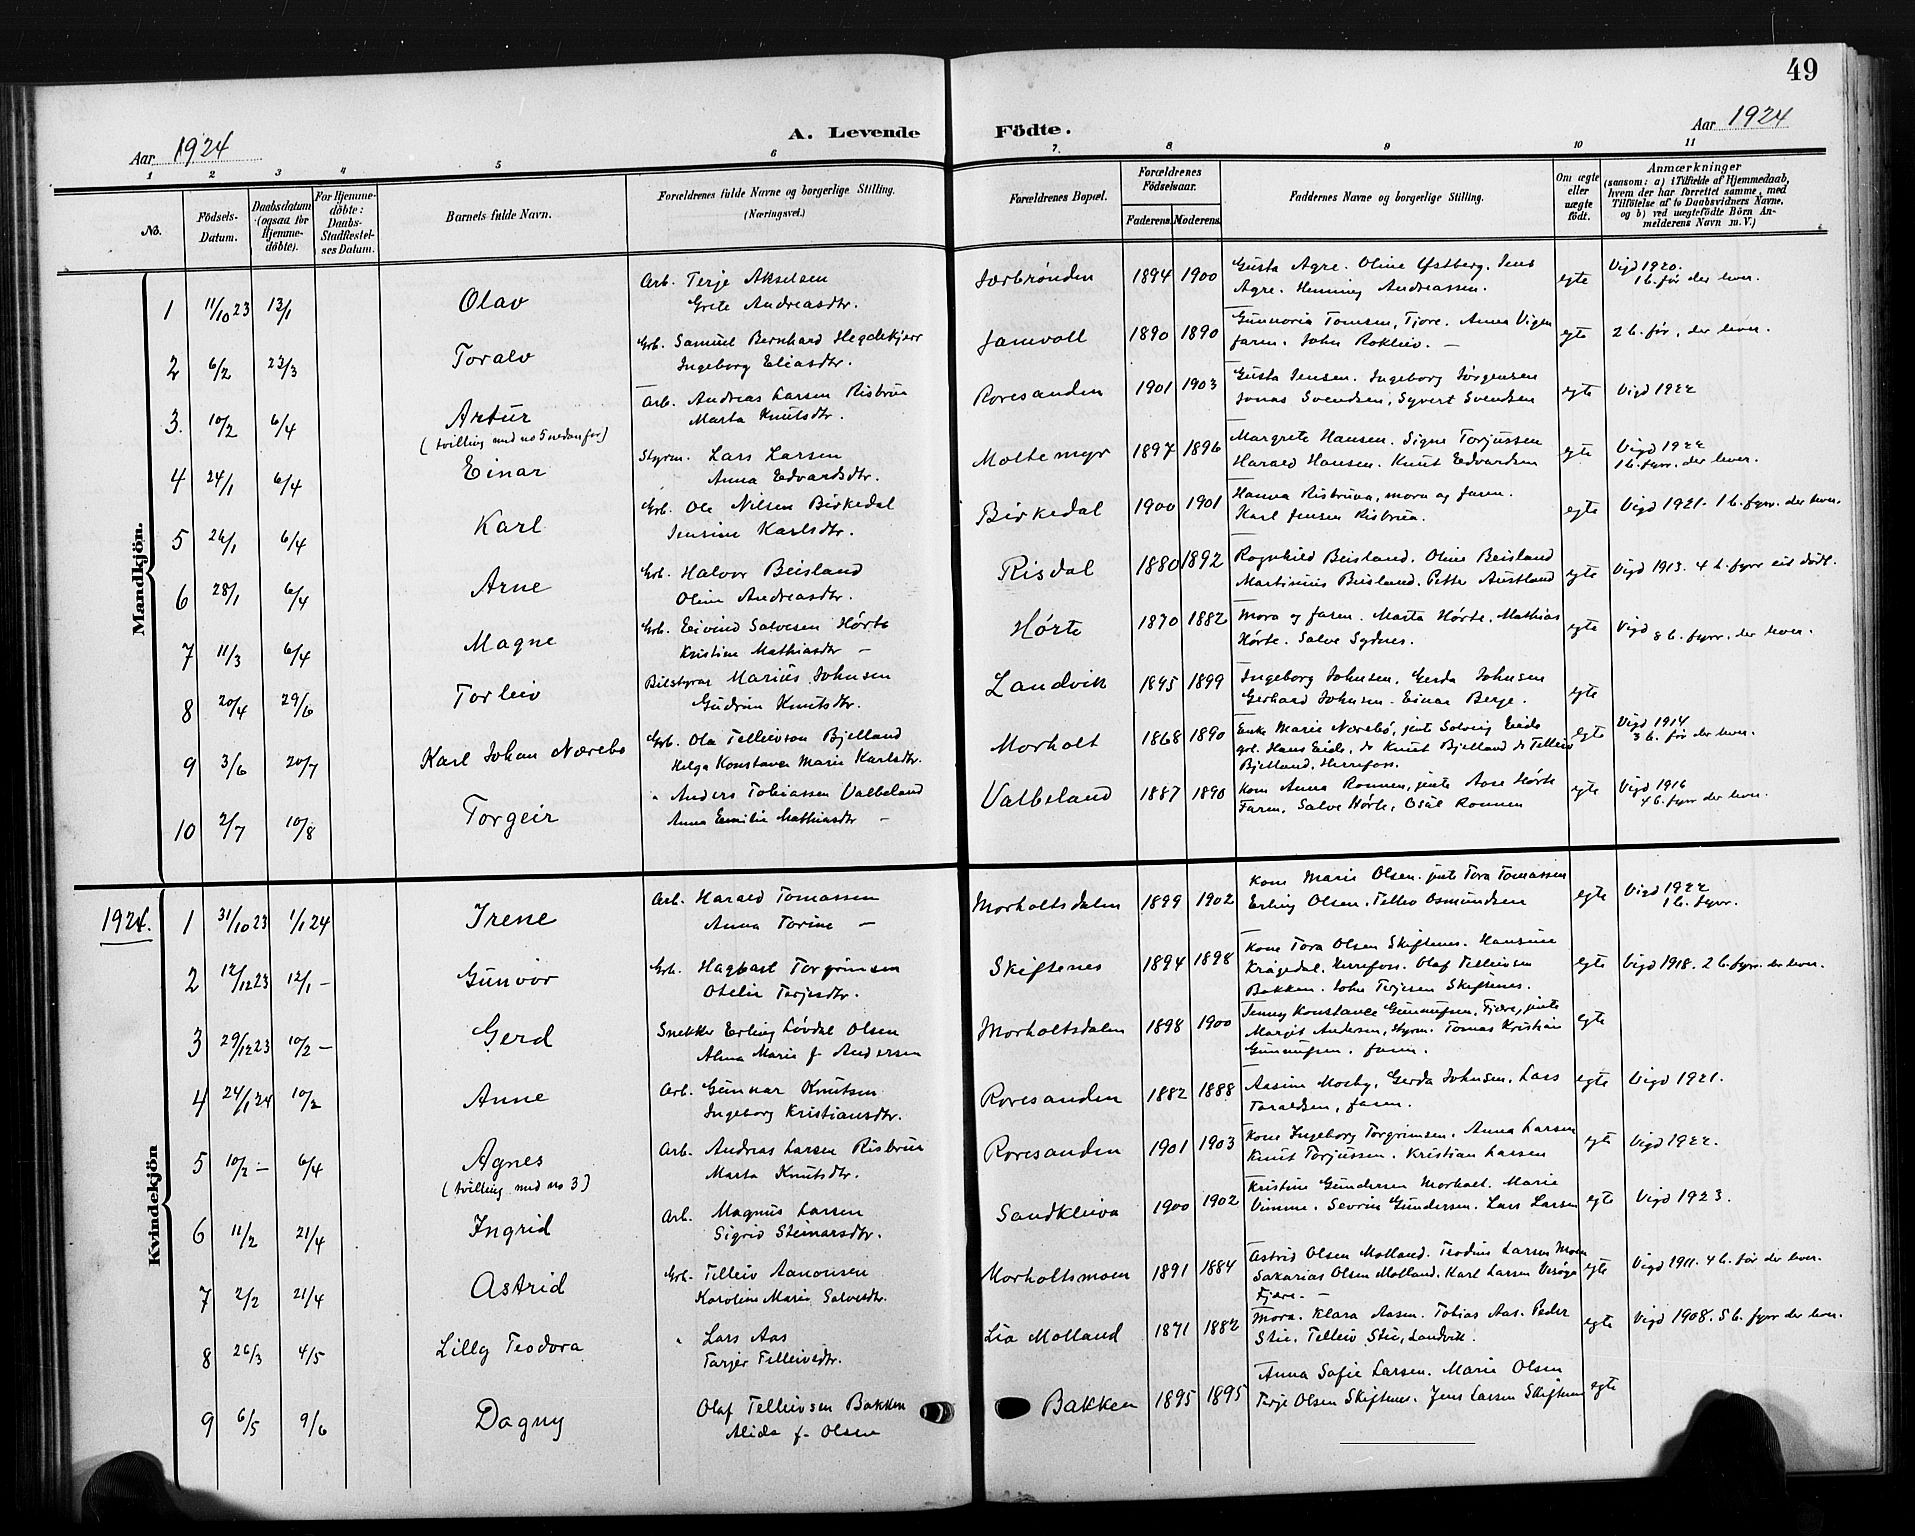 49
Aar 1924 A. Levende Födte. Aar 1924
1 2 3 4 5 6 7. 8 9 10 11
No. Födsels-Datum. Daabsdatum (ogsaa for Hjemmedöbte). For Hjemmedöbte: Daabs-Stadfestelses Datum. Barnets fulde Navn. Forældrenes fulde Navne og borgerlige Stilling. (Næringsvei.) Forældrenes Bopæl. Forældrenes Födselsaar. Faderens. Moderens. Faddernes Navne og borgerlige Stilling. Om ægte eller uægte födt. Anmærkninger (saasom: a) i Tilfælde af Hjemmedaab, hvem der har forrettet samme, med Tilföielse af to Daabsvidners Navne, og b) ved uægtefödte Börn Anmelderens Navn m. V.)
Mandkjön.
1 11/10 23 13/1 Olav Arb. Terje Akselsen
Grete Andreasdtr. Jærbrønden 1894 1900 Gusta Agre. Oline Østberg. Jens
Agre. Henning Andreassen. egte Vigd 1920.
1 b. før der lever.
2 6/2 23/3 Toralv Grb. Samuel Bernhard Hegdekjerr
Ingeborg Eliasdtr. Jamvoll 1890 1890 Gunnoria Tomsen, Fjære. Anna Vigen
faren. John Rokleiv. — egte 2 b. før, der lever.
3. 10/2 6/4 Artur
(tvilling med no 5 nedanfor) Arb. Andreas Larsen Risbrua
Marta Knutsdtr. Roresanden 1901 1903 Gusta Jensen. Ingeborg Jørgensen
Jonas Svendsen, Syvert Svendsen egte Vigd 1922
4 24/1 6/4 Einar Styrm. Lars Larsen
Anna Edvardsdtr. Moltemyr 1897 1896 Margrete Hansen. Signe Torjussen
Harald Hansen. Knut Edvardsen egte Vigd 1922
1 b. fyrr. der lever.
5 26/1 6/4 Karl Grb. Ole Nilsen Birkedal
Jensine Karlsdtr. Birkedal 1900 1901 Hanna Risbrua, mora og faren.
Karl Jensen Risbrua. egte Vigd 1921. 1 b. fyrr. der lever.
6 28/1 6/4 Arne Grb. Halvor Beisland
Oline Andreasdtr. Risdal 1880 1892 Ragnhild Beisland. Oline Beisland
Martinius Beisland. Petter Austland egte Vigd 1913. 4 b. fyrr eit dødt.
7 11/3 6/4 Magne Grb. Eivind Salvesen Hørte
Kristine Mathiasdtr — Hørte 1870 1882 Mora og faren. Marta Hørte. Mathias
Hørte. Salve Sydnes. egte Vigd 8 b. fyrr. der lever.
8 20/4 29/6 Torleiv Bilstyrar Marius Johnsen
Gudrun Knutsdtr. Landvik 1895 1899 Ingeborg Johnsen, Gerda Johnsen
Gerhard Johnsen. Einar Berge. egte
9 3/6 20/7 Karl Johan Nærebø Grb. Ola Telleivson Bjelland
Helga Konstanse Marie Karlsdtr. Morholt 1868 1890 Enke Marie Nærebø, jente Solveig Eide
grb. Hans Eide, do Knut Bjelland do Telleiv
Bjelland, Herrefoss. egte Vigd 1914
3 b. før der lever.
10 2/7 10/8 Torgeir " Anders Tobiassen Valbeland
Anna Emilie Mathiasdtr — Valbeland 1887 1890 Kone Anna Ronnen, jente Aase Hørte
Faren, Salve Hørte, Ronnen egte Vigd 1916
4 b. fyrr der lever.
Kvindekjön
1924. 1 31/10 23 1/1 24 Irene Arb. Harald Tomassen
Anna Torine — Morholtsdalen 1899 1902 Kone Marie Olsen. jente Tora Tomassen
Erling Olsen. Tellev Osmundsen egte Vigd 1922
1 b. fyrr.
2 12/12 23 12/1 — Gunvor Grb. Hagbart Torgrimsen
Otelie Terjesdtr. Skiftenes 1894 1898 Kone Tora Olsen Skiftenes. Hansine
Krågedal, Herrefoss. Olaf Telleivsen
Bakken. John Terjesen Skiftenes. egte Vigd 1918. 2 b. fyrr. der lever.
3 29/12 23 10/2 — Gerd Snekker Erling Løvdal Olsen
Alma Marie f. Andersen Morholtsdalen 1898 1900 Jenny Konstance Gunnufsen, Fjære, jente
Margit Andersen, styrm. Tomas Kristian
Gunnufsen. faren. egte
4 24/1 24 10/2 Anne Arb. Gunnar Knutsen
Ingeborg Kristiansdtr. Roresanden 1882 1888 Aasine Mosby, Gerda Johnsen, Lars
Taraldsen, faren. egte Vigd 1921.
5 10/2 — 6/4 Agnes
(tvilling med no 3) Arb. Andreas Larsen Risbrua
Marta Knutsdtr. Roresanden 1901 1903 Kone Ingeborg Torgrimsen. Anna Larsen
Knut Torjussen. Kristian Larsen egte Vigd 1922.
6 11/2 21/4 Ingrid Arb. Magnus Larsen
Sigrid Steinarsdtr. Sandkleiva 1900 1902 Kristine Gundersen Morholt. Marie
Vimme. Severin Gundersen. Lars Larsen egte Vigd 1923.
7 2/2 21/4 Astrid Grb. Telleiv Aanonsen
Karoline Marie Salvesdtr. Morholtsmoen 1891 1884 Astrid Olsen Molland. Teodine Larsen Moen
Sakarias Olsen Molland. Karl Larsen Vesøya
Fjære. — egte Vigd 1911. 4 b. før der lever.
8 26/3 4/5 Lilly Teodora " Lars Aas
Tarjer Telleivsdtr. Lia Molland 1871 1882 Mora. Klara Aasen. Tobias Aas. Peder
Stie. Telleiv Stie, Landvik. egte Vigd 1908. 5 b. fyrr der lever.
9 6/5 9/6 Dagny Olaf Telleivsen Bakken
Alida f. Olsen Bakken 1895 1895 Anna Sofie Larsen. Marie Olsen
Terje Olsen Skiftenes. Jens Larsen Skiftenes egte